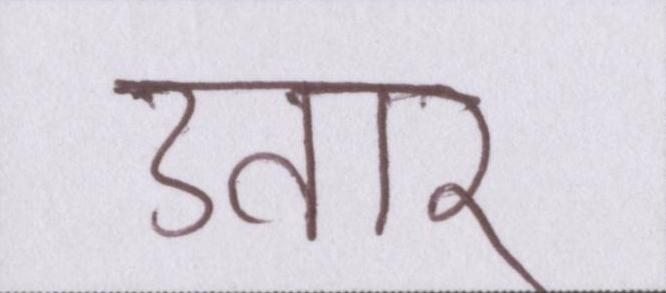 उतार